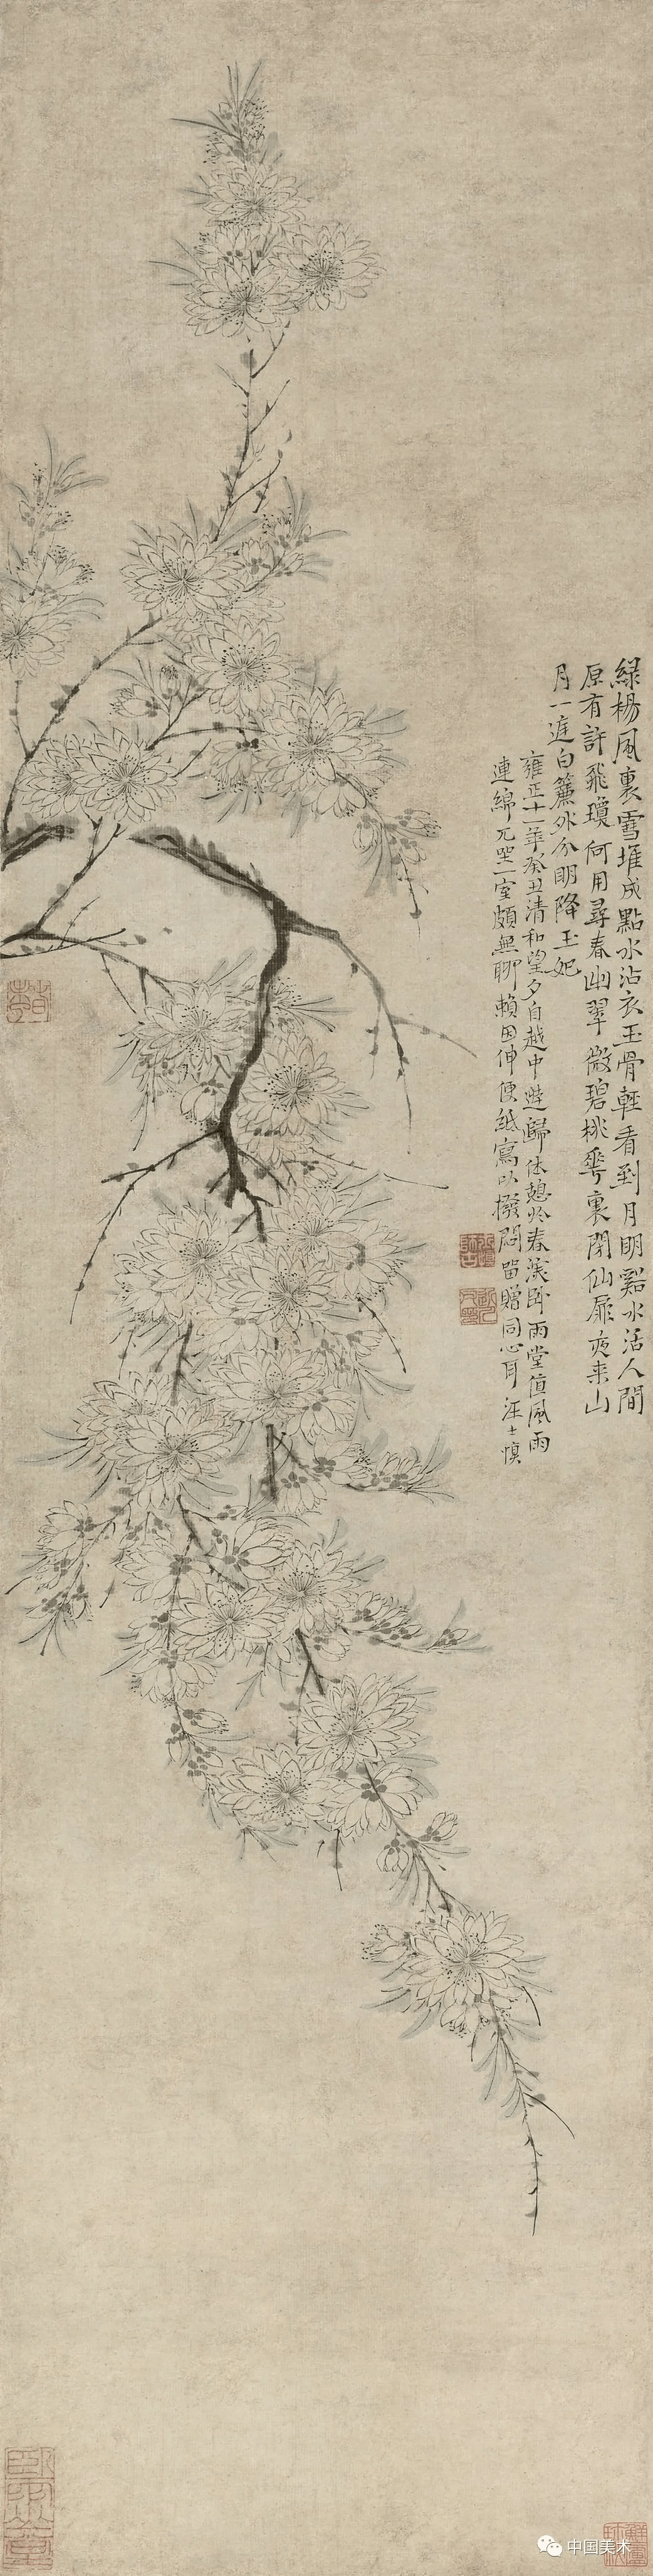 綠楊風裏雪堆成點水沾衣玉骨輕看到月明谿水活人間
原有許飛瓊何用尋春幽翠微碧桃華裏閉仙扉夜来山
月一庭白簾外分明降玉妃
雍正十一年癸丑清和望夕自越中遊歸休憩於春溪卧雨堂值風雨
連綿兀坐一室頗無聊賴因伸便紙寫以撥悶留贈同心耳 汪士慎
中国美术